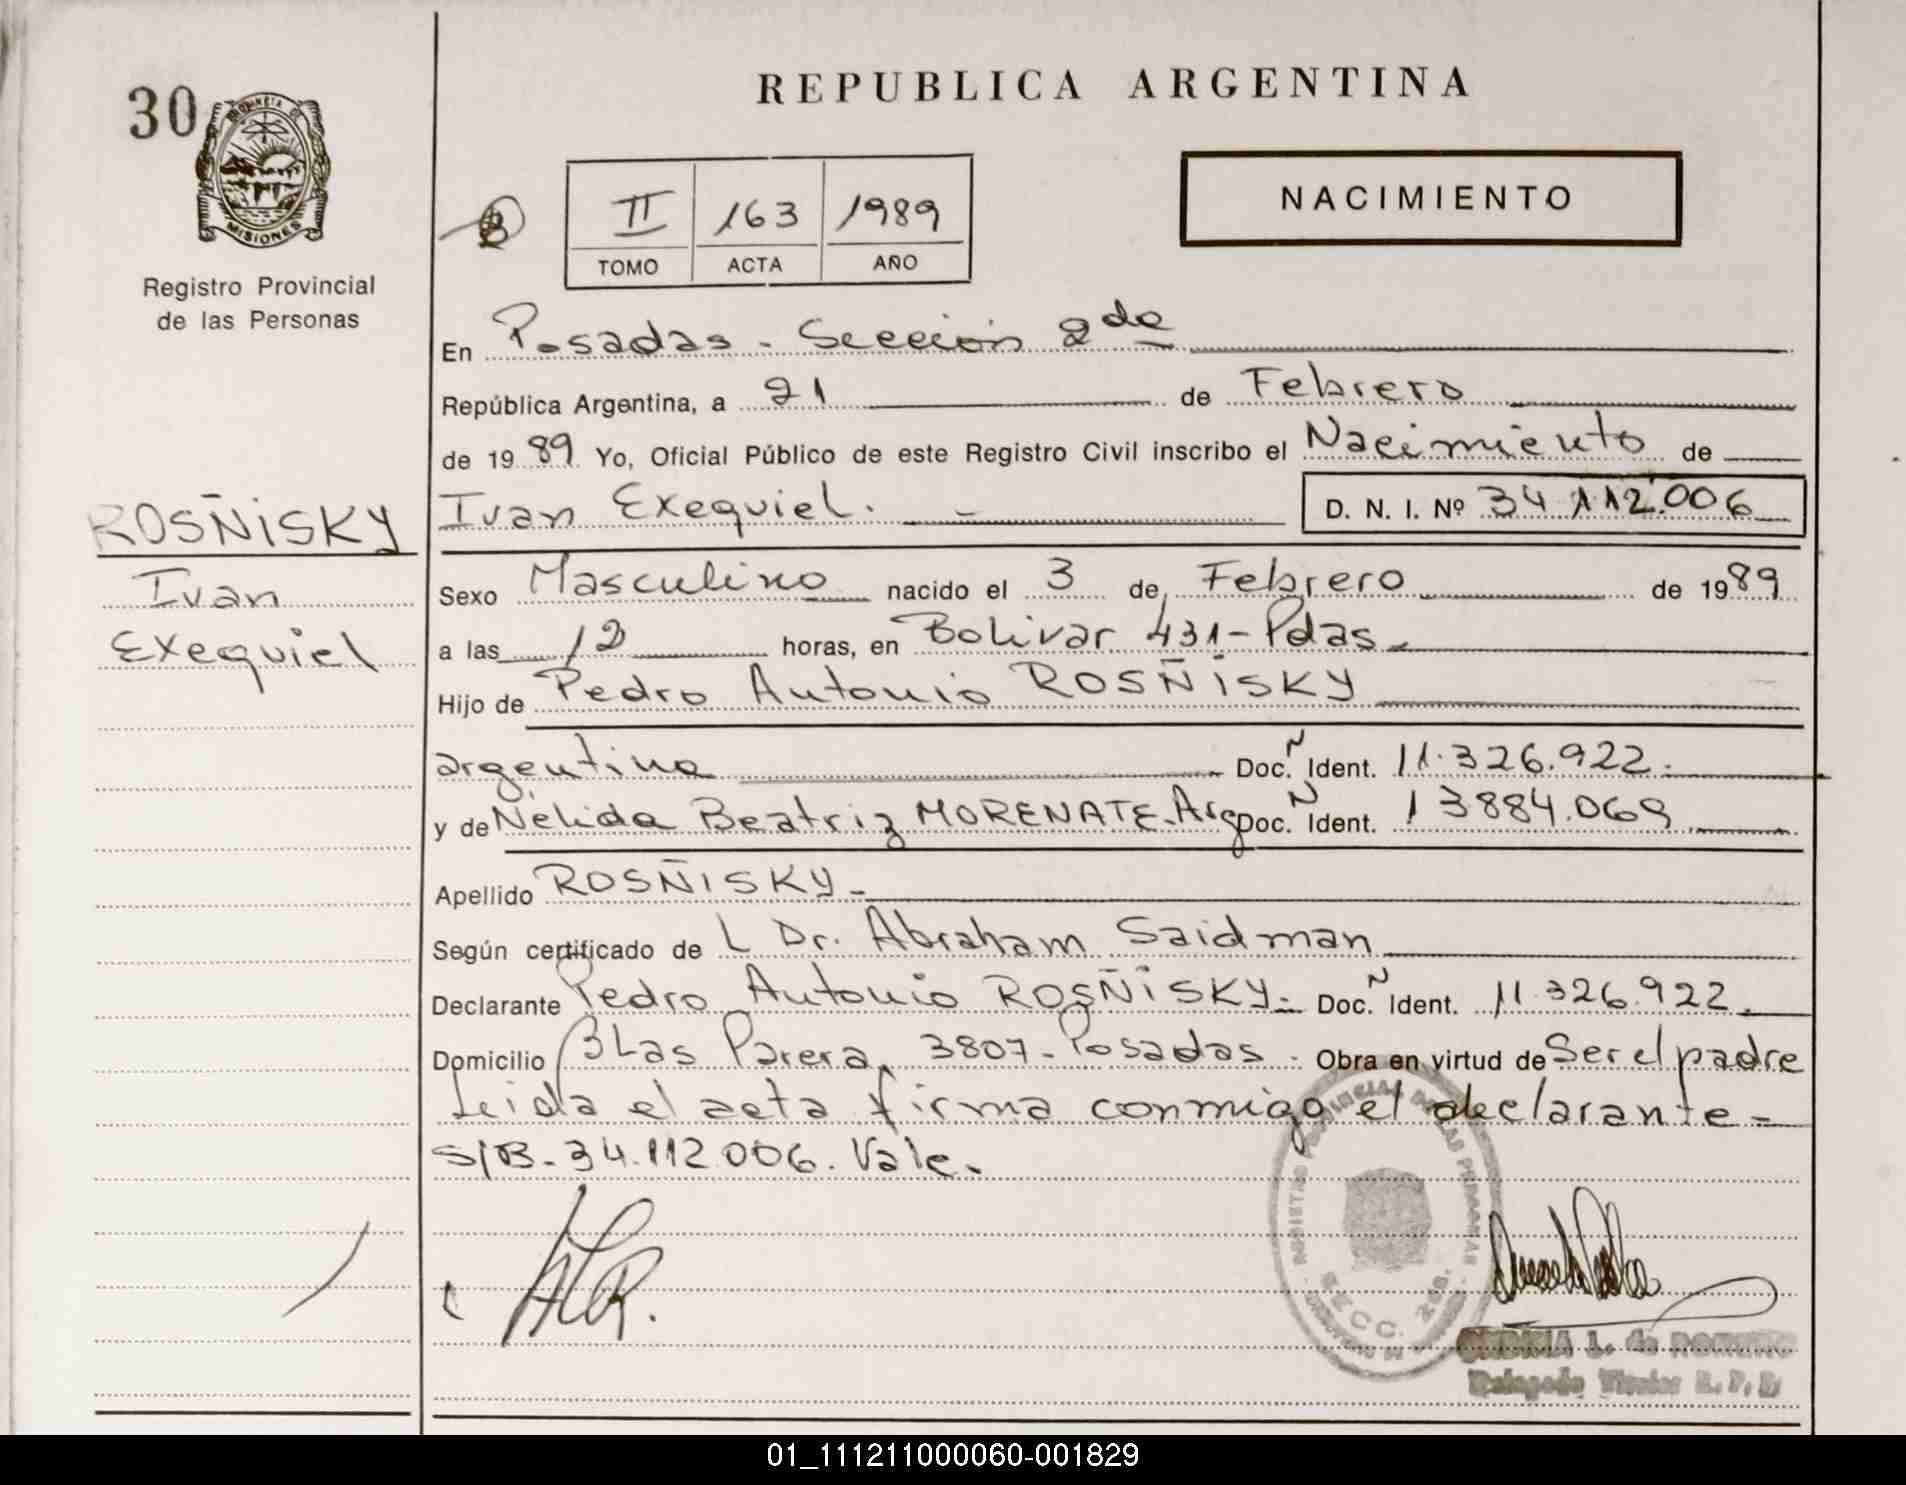 30
PROVINCIA
MISIONES
Registro Provincial
de las Personas
REPUBLICA ARGENTINA
II 163 1989
TOMO ACTA AÑO
NACIMIENTO
En Posadas - Sección 2da
República Argentina, a 21 de Febrero
de 1989 Yo, Oficial Público de este Registro Civil inscribo el Nacimiento de
ROSÑISKY
Ivan
Exequiel
Ivan Exequiel. - D. N. I. Nº 34 112.006
Sexo Masculino nacido el 3 de Febrero de 1989
a las 12 horas, en Bolivar 431 - Pdas -
Hijo de Pedro Antonio ROSÑISKY
argentino Doc. N Ident. 11.326.922.
y de Nélida Beatriz MORENATE - Arg Doc. N Ident. 13884.069
Apellido ROSÑISKY -
Según certificado de L Dr. Abraham Saidman
Declarante Pedro Antonio ROSÑISKY - Doc. N Ident. 11.326.922.
Domicilio Blas Parera 3807 - Posadas - Obra en virtud de Ser el padre
Leida el acta firma conmigo el declarante -
S/B - 34.112.006. Vale.
REGISTRO PROVINCIAL DE LAS PERSONAS
SECC. 2da.
L. de ROMERO
Delegado Titular R. P. P.
01_111211000060-001829